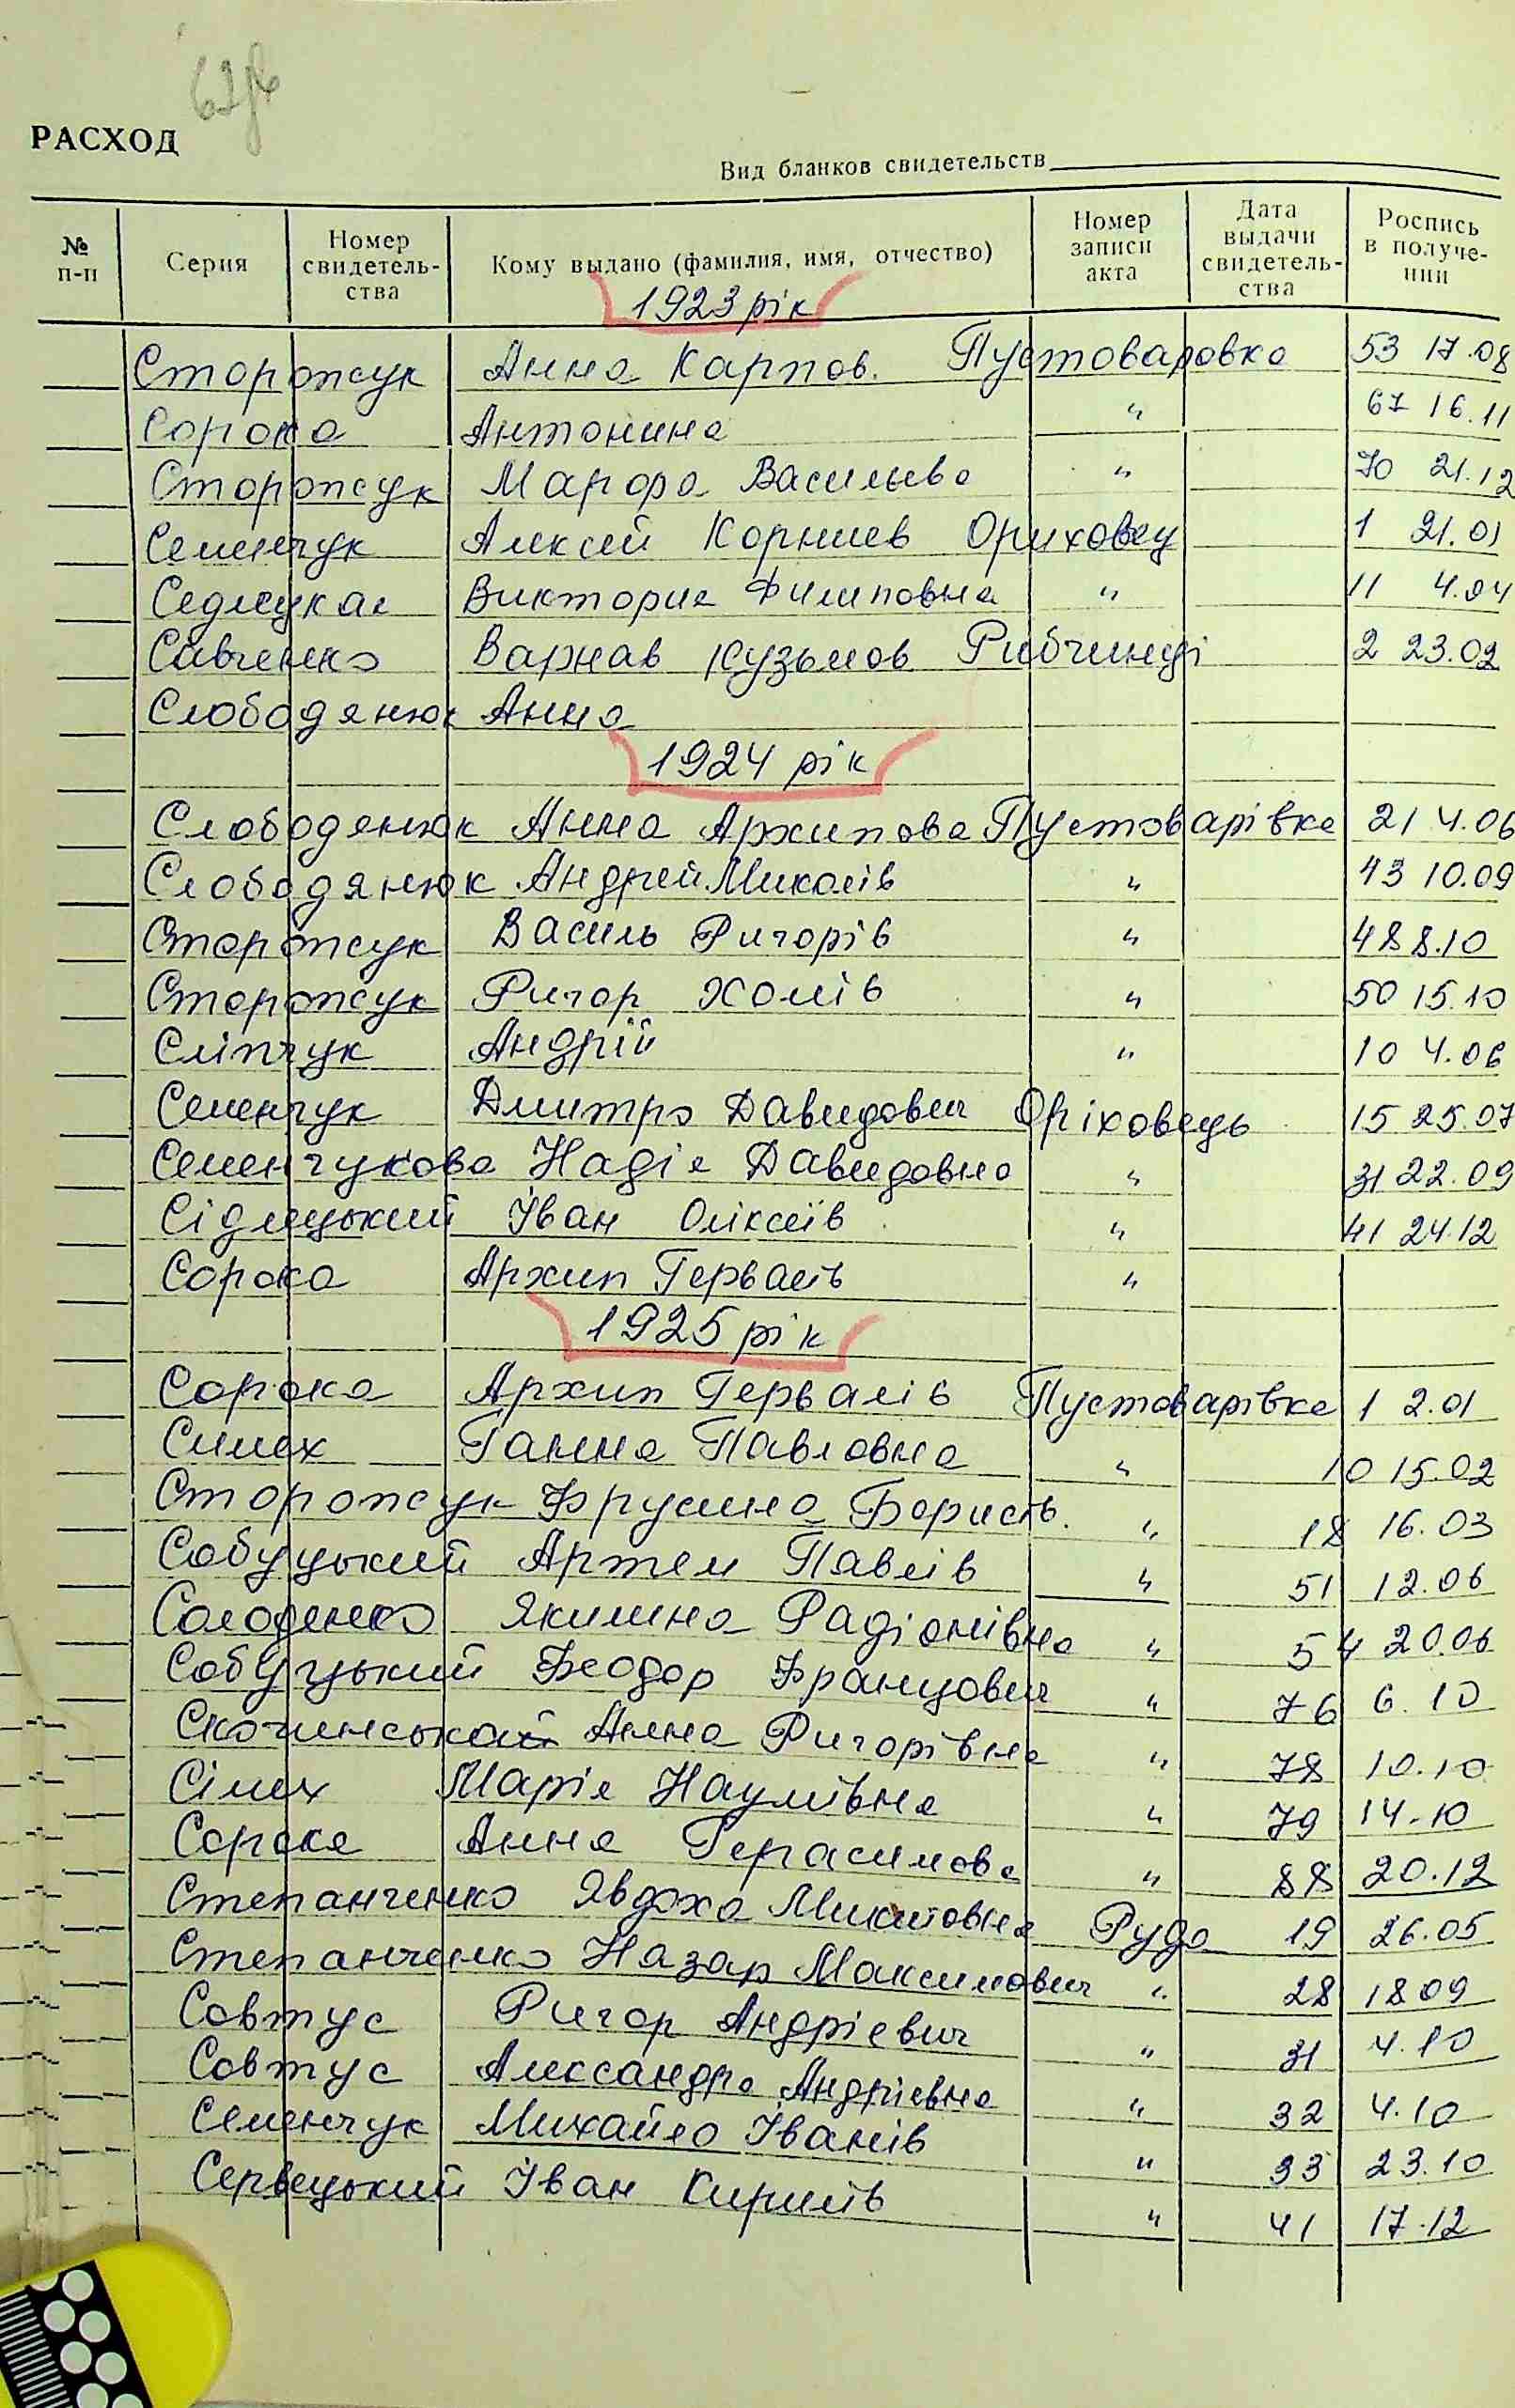 РАСХОД
Вид бланков свидетельств
№ п-п Серия Номер свидетель-ства Кому выдано (фамилия, имя, отчество) Номер записи акта Дата выдачи свидетель-ства Роспись в получе-нии
1923 рік
Сторожук Анна Карпов. Пустоваровка 53 17.08
Сорока Антонина " 67 16.11
Сторожук Марфа Васильева " 70 21.12
Семенчук Алексей Корниев Ориховец 1 21.01
Седлецкая Виктория Филиповна " 11 4.04
Савченко Варнав Кузьмов Рибчинці 2 23.02
Слободянюк Анна
1924 рік
Слободянюк Анна Архипова Пустоварівка 21 4.06
Слободянюк Андрей Миколів " 43 10.09
Сторожук Василь Ригорів " 48 8.10
Сторожук Ригор Хомів " 50 15.10
Сліпчук Андрій " 10 4.06
Семенчук Дмитро Давидович Оріховець 15 25.07
Семенчукова Надія Давидовна " 31 22.09
Сідлецький Іван Оліксеїв " 41 24.12
Сорока Архип Герваіїв "
1925 рік
Сорока Архип Гервасів Пустоварівка 1 2.01
Симех Ганна Павловна " 10 15.02
Сторожук Фрусина Борисів. " 18 16.03
Собуцький Артем Павлів " 51 12.06
Солоденко Якилина Радіонівна " 54 20.06
Собуцький Феодор Францович " 76 6.10
Скочинська Анна Ригорівна " 78 10.10
Сімех Марія Наумівна " 79 14.10
Сорока Анна Герасимова " 88 20.12
Степанченко Явдоха Микитовна Руда 19 26.05
Степанченко Назар Максимович " 28 18 09
Совтус Ригор Андріевич " 31 4.10
Совтус Александра Андріевна " 32 4.10
Семенчук Михайло Іванів " 33 23.10
Сервецький Іван Кирилів " 41 17.12